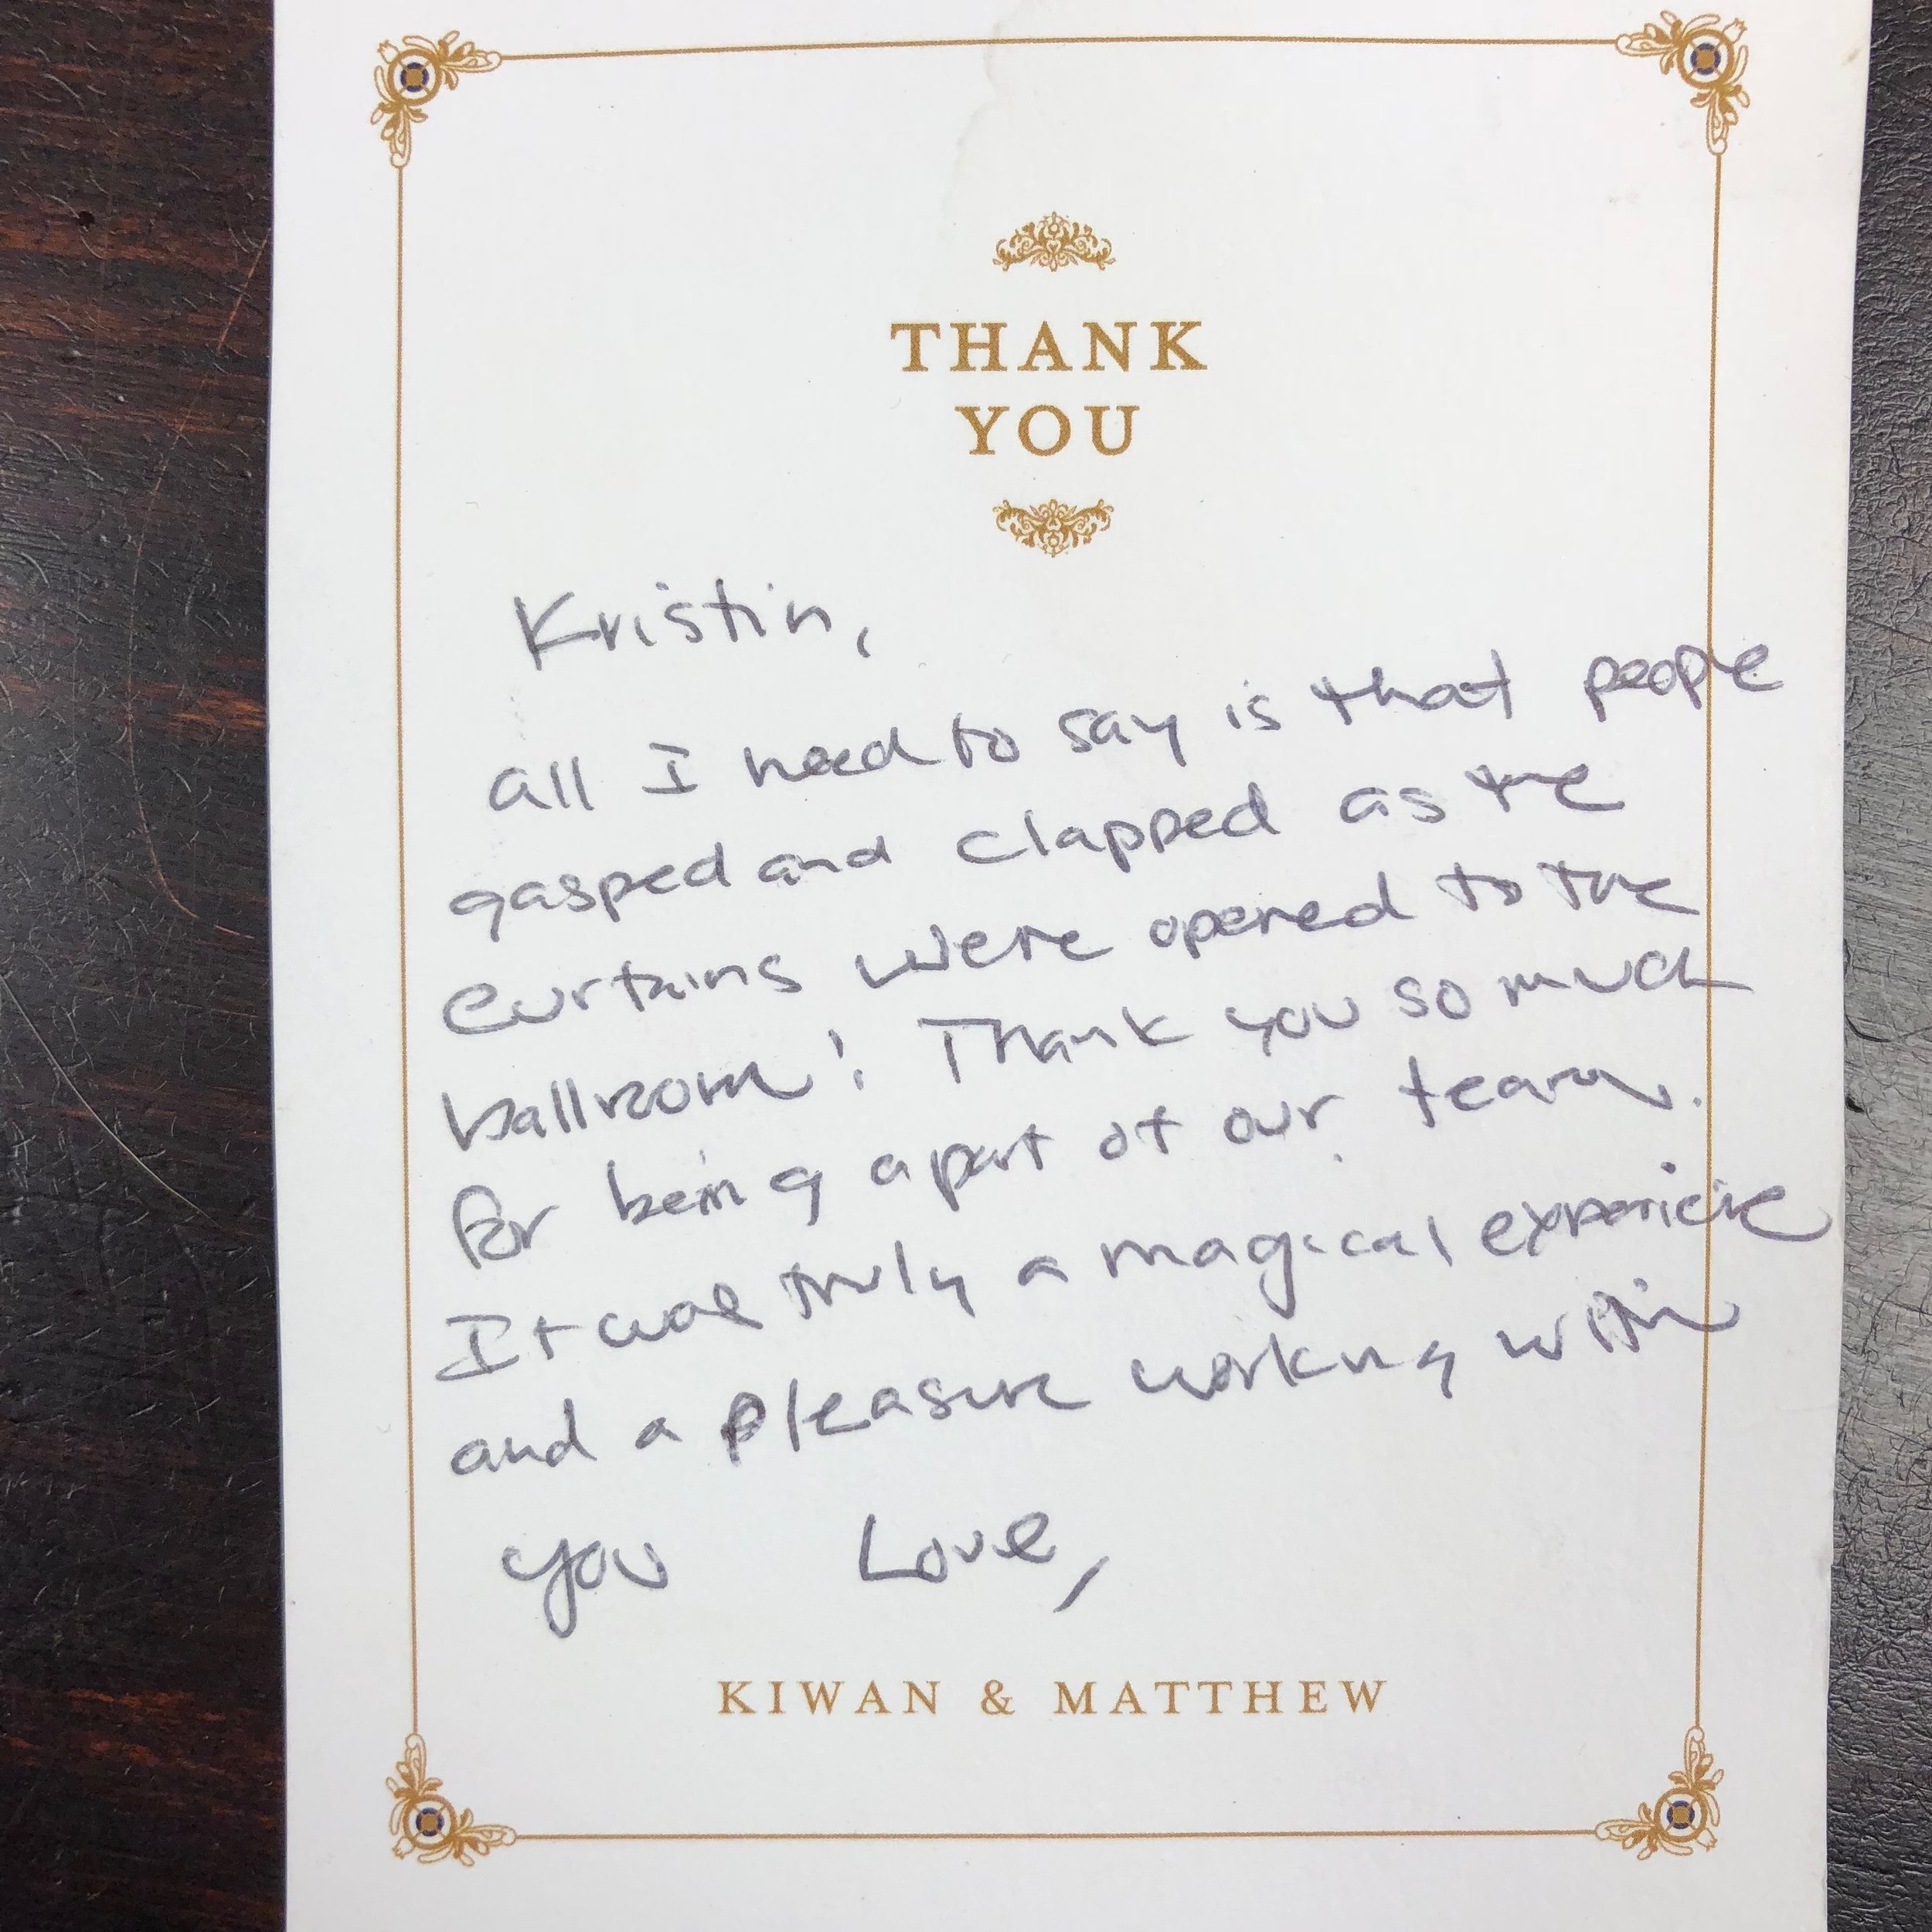 THANK
YOU
Kristin,
all I need to say is that people
gasped and clapped as the
curtains were opened to the
ballroom! Thank you so much
for being a part of our team.
It was truly a magical experience
and a pleasure working with
you Love,
KIWAN & MATTHEW